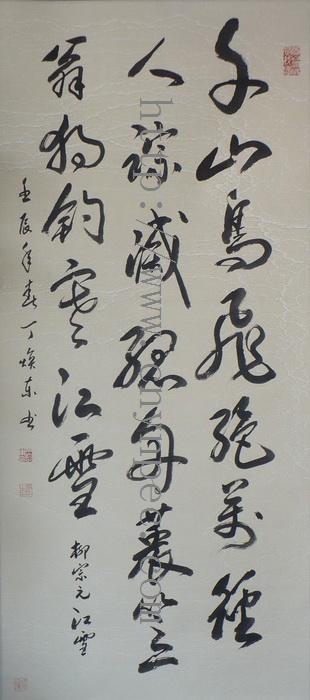 千山鳥飛絕萬徑
人蹤滅孤舟蓑笠
翁独釣寒江雪
柳宗元江雪
壬辰年春丁焕东书